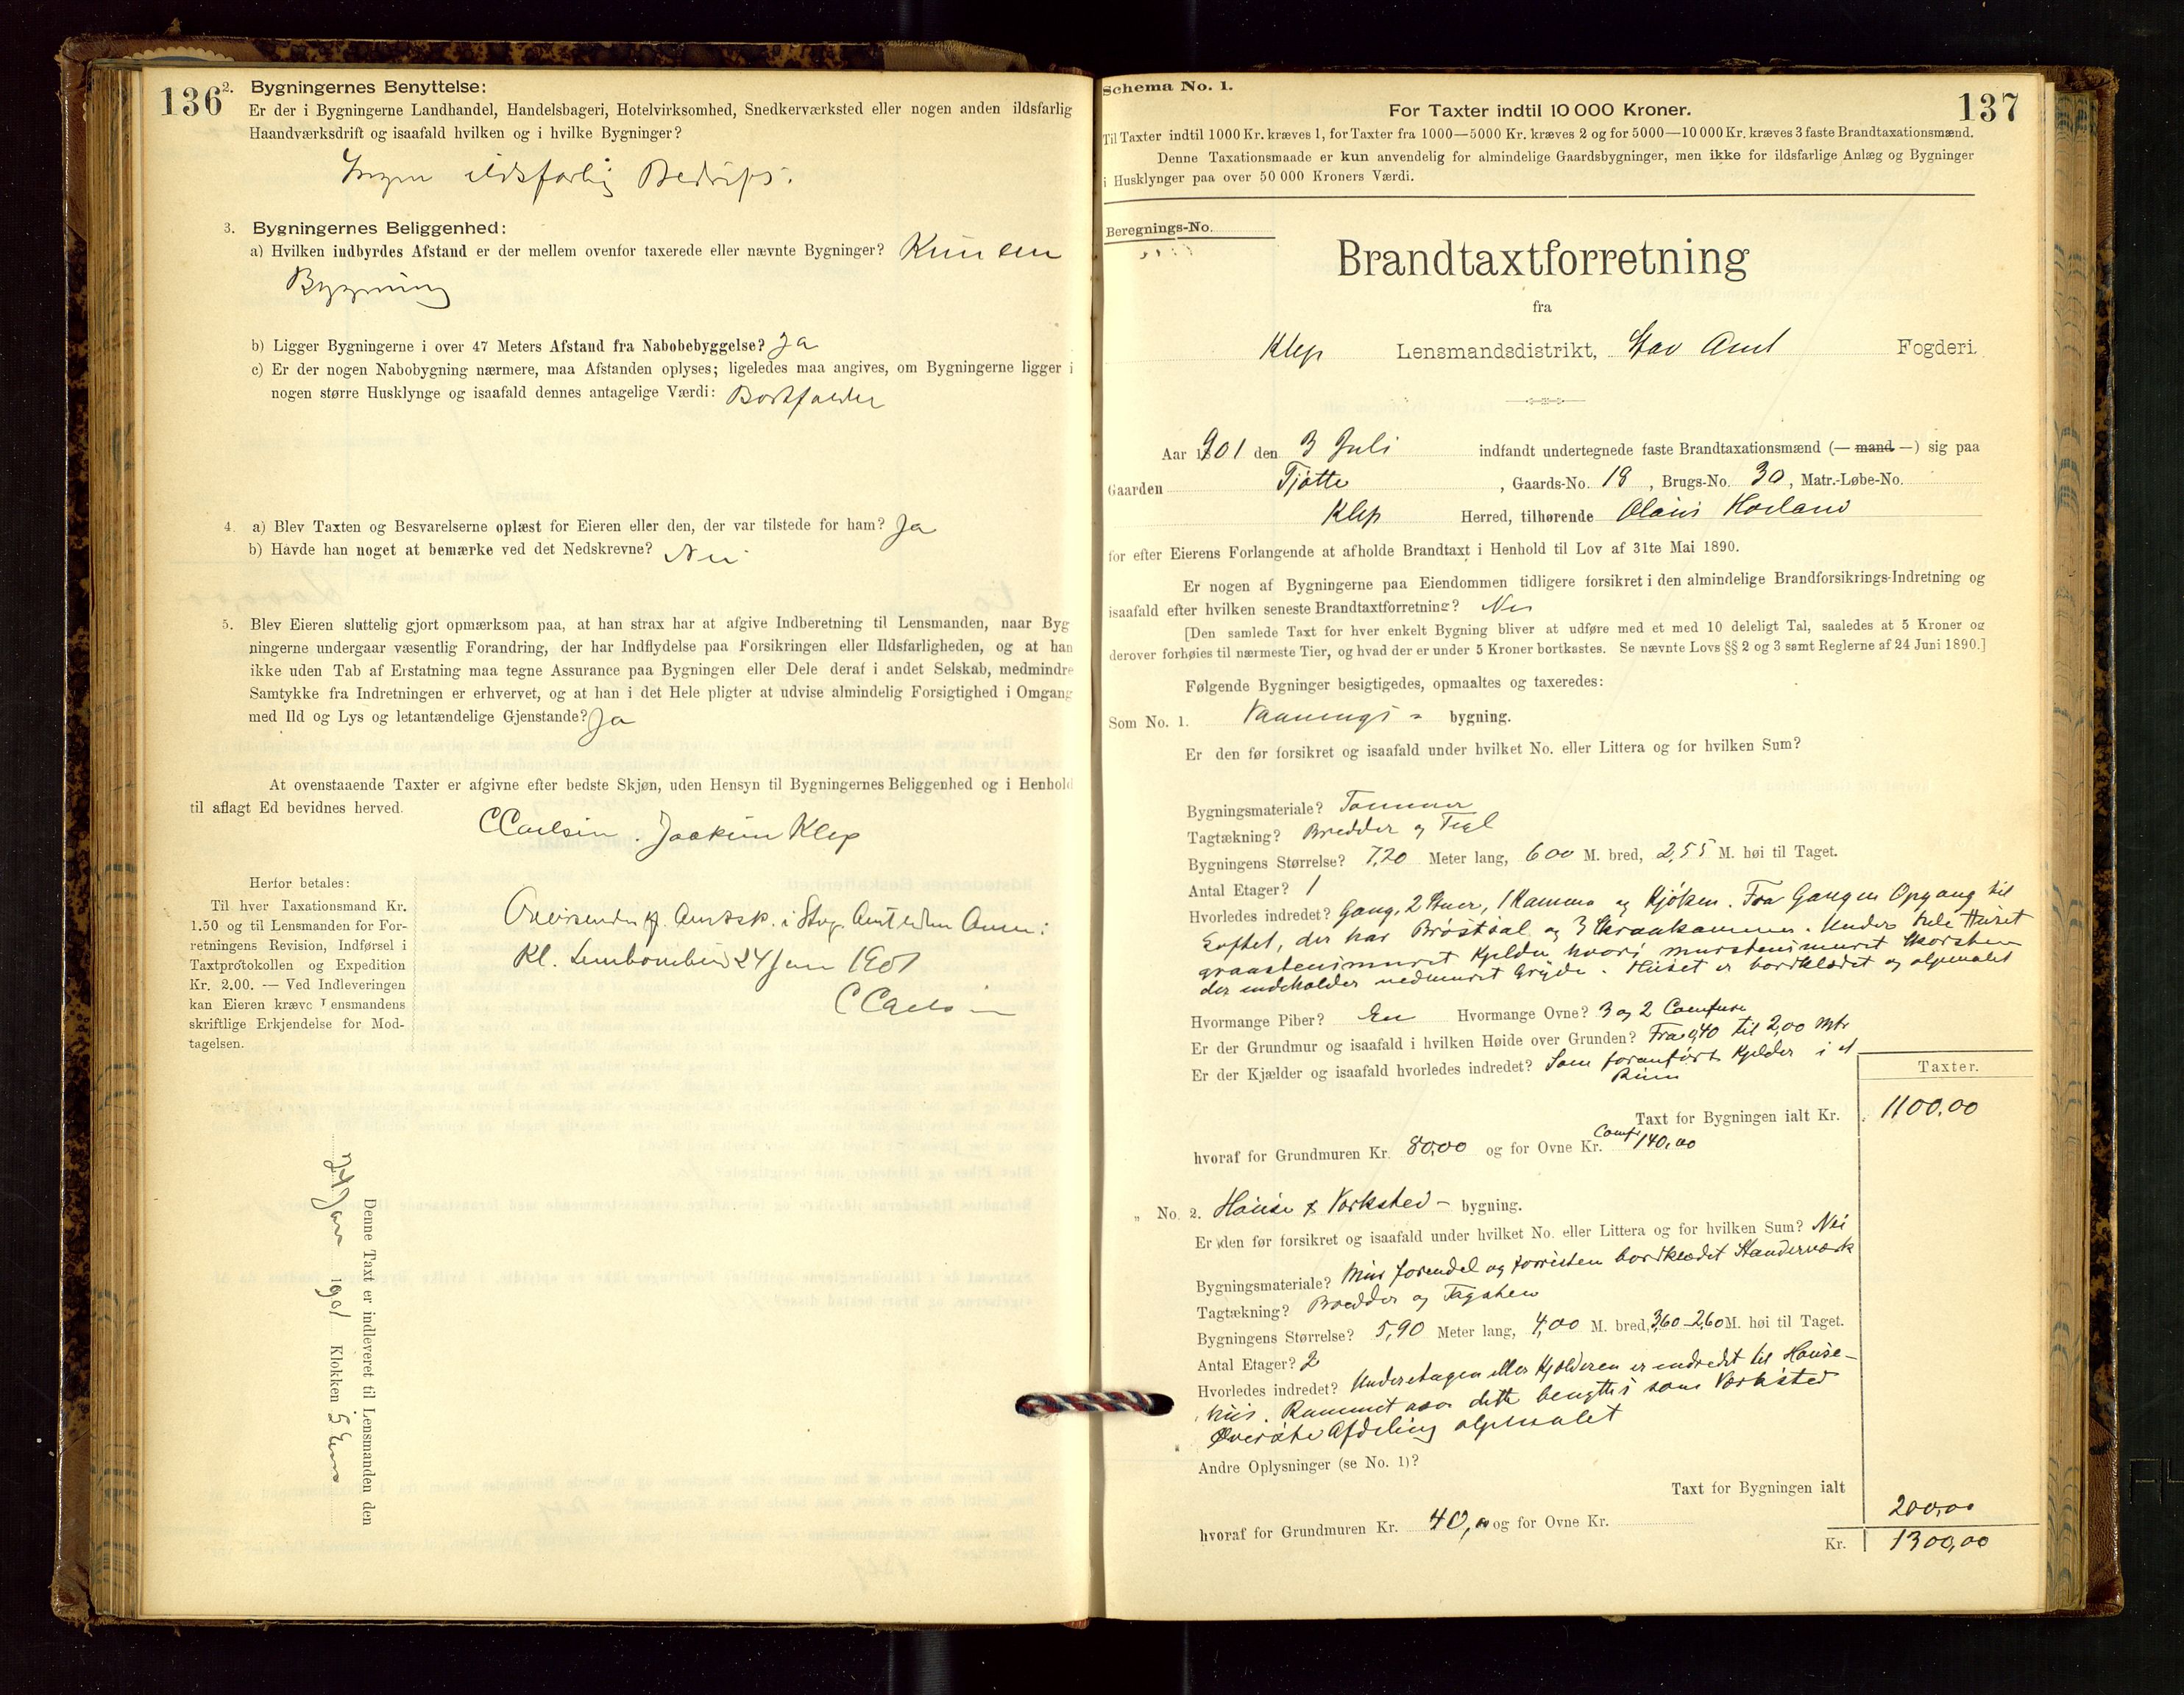 136
2. Bygningernes Benyttelse:
Er der i Bygningerne Landhandel, Handelsbageri, Hotelvirksomhed, Snedkerværksted eller nogen anden ildsfarlig
Haandværksdrift og isaafald hvilken og i hvilke Bygninger?
Ingen ildsfarlig Bedrift.
3. Bygningernes Beliggenhed:
a) Hvilken indbyrdes Afstand er der mellem ovenfor taxerede eller nævnte Bygninger? Kun en
Bygning
b) Ligger Bygningerne i over 47 Meters Afstand fra Nabobebyggelse? Ja
c) Er der nogen Nabobygning nærmere, maa Afstanden oplyses; ligeledes maa angives, om Bygningerne ligger i
nogen større Husklynge og isaafald dennes antagelige Værdi: Bortfalder
4. a) Blev Taxten og Besvarelserne oplæst for Eieren eller den, der var tilstede for ham? Ja
b) Havde han noget at bemærke ved det Nedskrevne? Nei
5. Blev Eieren sluttelig gjort opmærksom paa, at han strax har at afgive Indberetning til Lensmanden, naar Byg
ningerne undergaar væsentlig Forandring, der har Indflydelse paa Forsikringen eller Ildsfarligheden, og at han
ikke uden Tab af Erstatning maa tegne Assurance paa Bygningen eller Dele deraf i andet Selskab, medmindre
Samtykke fra Indretningen er erhvervet, og at han i det Hele pligter at udvise almindelig Forsigtighed i Omgang
med Ild og Lys og letantændelige Gjenstande? Ja
At ovenstaaende Taxter er afgivne efter bedste Skjøn, uden Hensyn til Bygningernes Beliggenhed og i Henhold
til aflagt Ed bevidnes herved.
CCarlsen. Joakim Klep
Herfor betales:
Til hver Taxationsmand Kr.
1.50 og til Lensmanden for For-
retningens Revision, Indførsel i
Taxtprotokollen og Expedition
Kr. 2.00. — Ved Indleveringen
kan Eieren kræve Lensmandens
skriftlige Erkjendelse for Mod-
tagelsen.
i Stav. Amt uden Anm:
Kl. 24 Juni 1901
CCarlsen
Denne Taxt er indleveret til Lensmanden den
24 Juni 1901 Klokken 5 Em
Schema No. 1.
137
For Taxter indtil 10 000 Kroner.
Til Taxter indtil 1000 Kr. kræves 1, for Taxter fra 1000—5000 Kr. kræves 2 og for 5000—10 000 Kr. kræves 3 faste Brandtaxationsmænd.
Denne Taxationsmaade er kun anvendelig for almindelige Gaardsbygninger, men ikke for ildsfarlige Anlæg og Bygninger
i Husklynger paa over 50 000 Kroners Værdi.
Beregnings-No.
Brandtaxtforretning
fra
Klep Lensmandsdistrikt, Stav Amt Fogderi
Aar 1901 den 3 Juli indfandt undertegnede faste Brandtaxationsmænd (— mand —) sig paa
Gaarden Tjøtte, Gaards-No. 18, Brugs-No. 30, Matr.-Løbe-No.
Klep Herred, tilhørende Olaus Horland
for efter Eierens Forlangende at afholde Brandtaxt i Henhold til Lov af 31te Mai 1890.
Er nogen af Bygningerne paa Eiendommen tidligere forsikret i den almindelige Brandforsikrings-Indretning og
isaafald efter hvilken seneste Brandtaxtforretning? Nei
[Den samlede Taxt for hver enkelt Bygning bliver at udføre med et med 10 deleligt Tal, saaledes at 5 Kroner og
derover forhøies til nærmeste Tier, og hvad der er under 5 Kroner bortkastes. Se nævnte Lovs §§ 2 og 3 samt Reglerne af 24 Juni 1890.]
Følgende Bygninger besigtigedes, opmaaltes og taxeredes:
Som No. 1. Vaanings- bygning.
Er den før forsikret og isaafald under hvilket No. eller Littera og for hvilken Sum?
Bygningsmateriale? Tømmer
Tagtækning? Bredder og Tegl
Bygningens Størrelse? 7,20 Meter lang, 600 M. bred, 2,55 M. høi til Taget.
Antal Etager? 1
Hvorledes indredet? Gang, 2 Stuer, 1 Kammer og Kjøkken. Fra Gangen Opgang til
Loftet, der har Brøstsal og 3 Skraakammer. Under hele Huset
graastensmuret Kjelder, hvori murstensmuret Skorsten
der indeholder nedmuret Gryde. Huset er bordklædet og oljemalet
Hvormange Piber? En Hvormange Ovne? 3 og 2 Comfurer
Er der Grundmur og isaafald i hvilken Høide over Grunden? Fra 0,40 til 2,00 Mtr
Er der Kjælder og isaafald hvorledes indredet? Som foranført Kjelder i et
Rum
Taxter.
Taxt for Bygningen ialt Kr. 1100,00
hvoraf for Grundmuren Kr. 80,00 og for Ovne Kr. Comf. 140,00
„ No. 2. Hønse & Værksted- bygning.
Er den før forsikret og isaafald under hvilket No. eller Littera og for hvilken Sum? Nei
Bygningsmateriale? Mur forendel og forresten bordklædet Standerværk
Tagtækning? Bredder og Tagsten
Bygningens Størrelse? 5,90 Meter lang, 4,00 M. bred, 3,60-2,60 M. høi til Taget.
Antal Etager? 2
Hvorledes indredet? Underetagen eller Kjelderen er indredet til Hønse-
hus. Rummet over dette benyttes som Værksted
Øverste Afdeling oljemalet
Andre Oplysninger (se No. 1)?
Taxt for Bygningen ialt 200,00
hvoraf for Grundmuren Kr. 40,00 og for Ovne Kr.
Kr. 1300,00